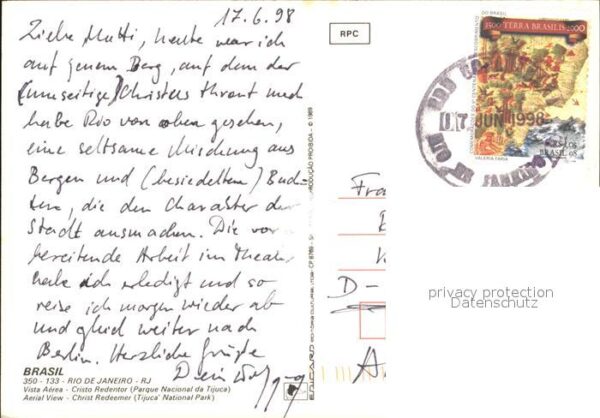 17.6.98
Liebe Mutti, heute war ich
auf jenem Berg, auf dem der
(umseitige) Christus thront und
habe Rio von oben gesehen,
eine seltsame Mischung aus
Bergen und (besiedelten) Buch-
ten, die den Charakter der
Stadt ausmachen. Die vor-
bereitende Arbeit im Theater
habe ich erledigt und so
reise ich morgen wieder ab
und gleich weiter nach
Berlin. Herzliche Grüße
Dein Wolfgang
BRASIL
350 - 133 - RIO DE JANEIRO - RJ
Vista Aérea - Cristo Redentor (Parque Nacional da Tijuca)
Aerial View - Christ Redeemer (Tijuca' National Park)
REPRODUÇÃO PROIBIDA - © 1989
RPC
1500 TERRA BRASILIS 2000
BRASIL 98
17 JUN 1998
RIO DE JANEIRO
Fra
D-
privacy protection
Datenschutz